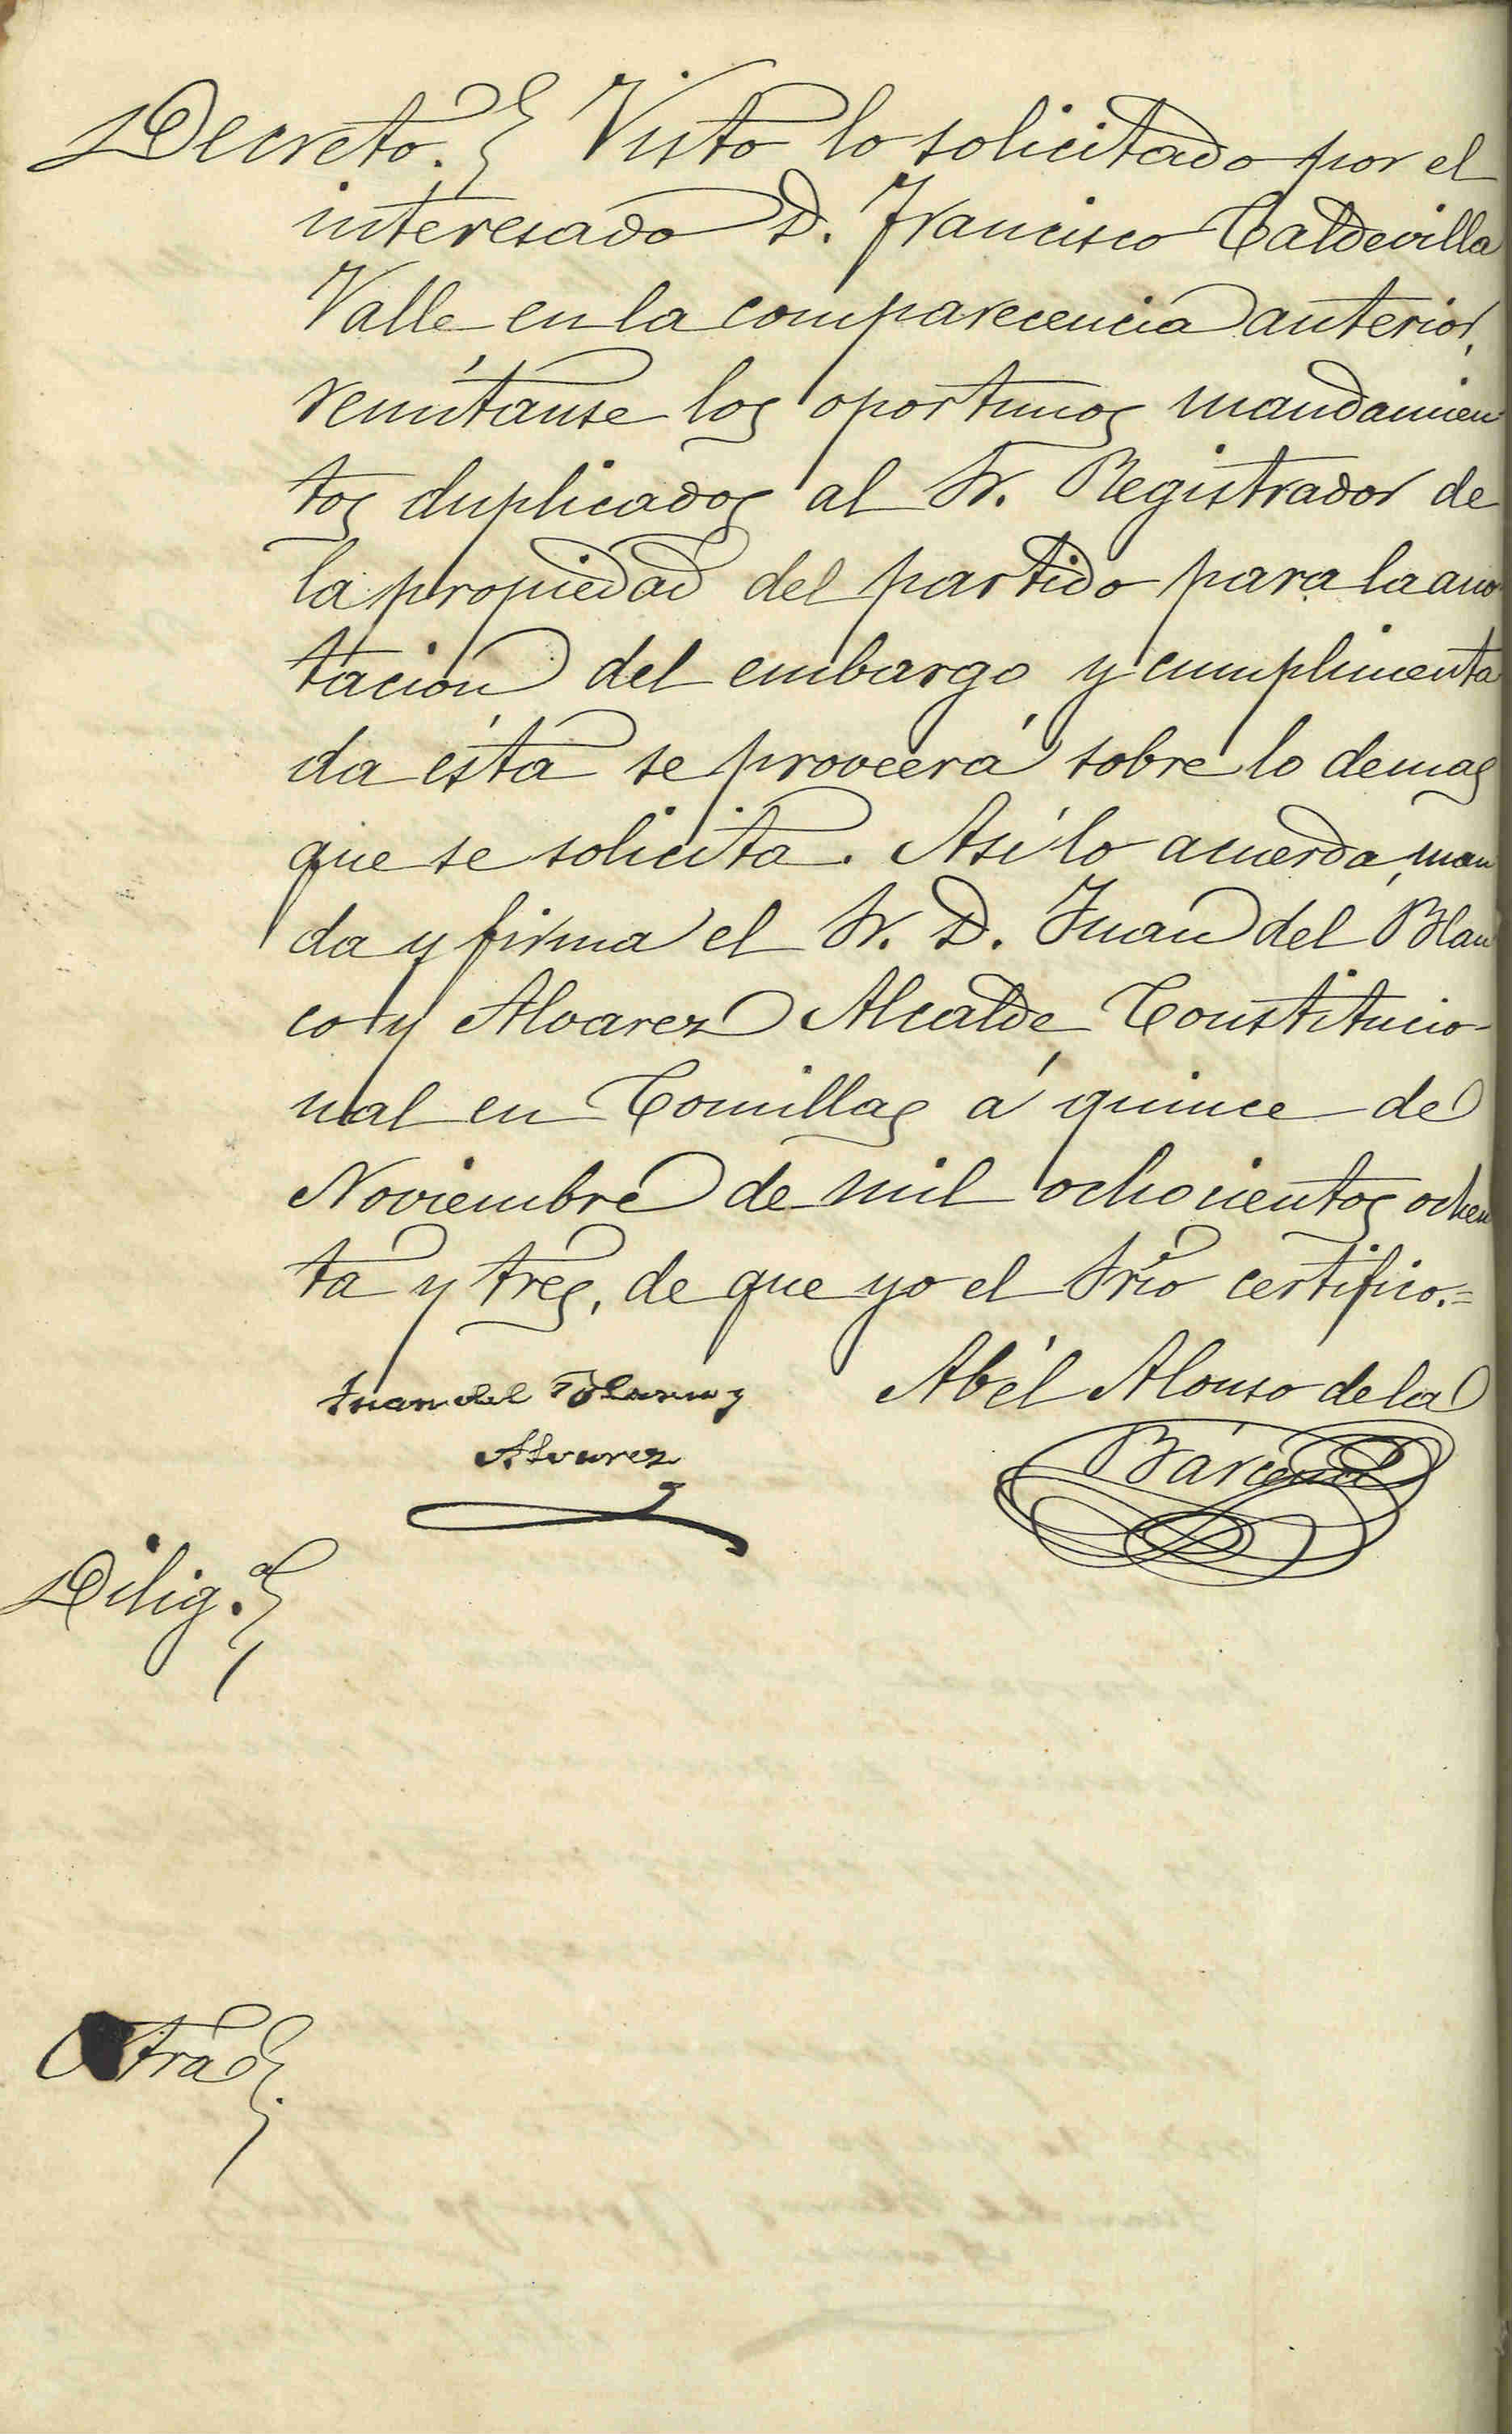 Decreto. Visto lo solicitado por el
interesado D. Francisco Caldevilla
Valle en la comparecencia anterior,
remítanse los oportunos mandamien
tos duplicados al Sr. Registrador de
la propiedad del partido para la ano
tacion del embargo y cumplimenta
da ésta se proveerá sobre lo demas
que se solicita. Así lo acuerda, man
da y firma el Sr. D. Juan del Blan
co y Alvarez Alcalde Constitucio-
nal en Comillas á quince de
Noviembre de mil ochocientos ochen
ta y tres, de que yo el Srio certifico.=
Juan del Blanco y
Alvarez
Abél Alonso de la
Bárcena
Dilig.
Otra